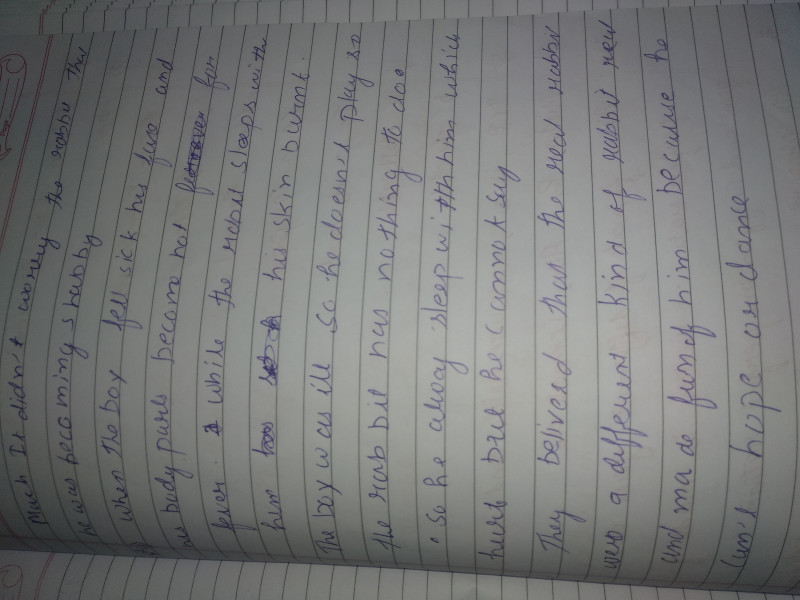 Much It didn't worry the rabbit that
he was becoming shabby
when the boy fell sick his face and
his body parts become hot for
fever. while the rabbit sleeps with
him his skin burnt.
The boy was ill so he doesn't play so
the rabbit has nothing to doe
so he alway sleep witth him which
hurt but he cannot say
They belivead that the real rabbit
were a different kind of rabbit real
and made fun of him because he
can't hope or dance